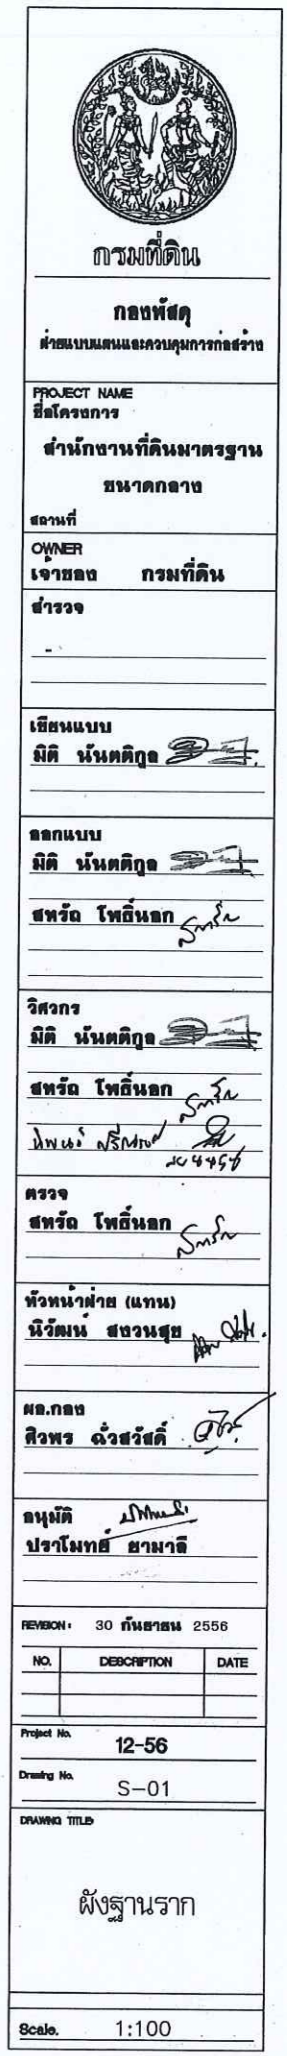 กรมที่ดิน
กองพัสดุ
ฝ่ายแบบแผนและควบคุมการก่อสร้าง
PROJECT NAME
ชื่อโครงการ
สำนักงานที่ดินมาตรฐาน
ขนาดกลาง
สถานที่
OWNER
เจ้าของ กรมที่ดิน
สำรวจ
เขียนแบบ
มิติ นันตติกูล
ออกแบบ
มิติ นันตติกูล
สหรัถ โพธิ์นอก
วิศวกร
มิติ นันตติกูล
สหรัถ โพธิ์นอก
ตรวจ
สหรัถ โพธิ์นอก
หัวหน้าฝ่าย (แทน)
นิวัฒน์ สงวนสุข
ผอ.กอง
ศิวพร ฉั่วสวัสดิ์
อนุมัติ
ปราโมทย์ ยามาลี
REVISION : 30 กันยายน 2556
NO. DESCRIPTION DATE
Project No. 12-56
Drawing No. S-01
DRAWING TITLE
ผังฐานราก
Scale. 1:100